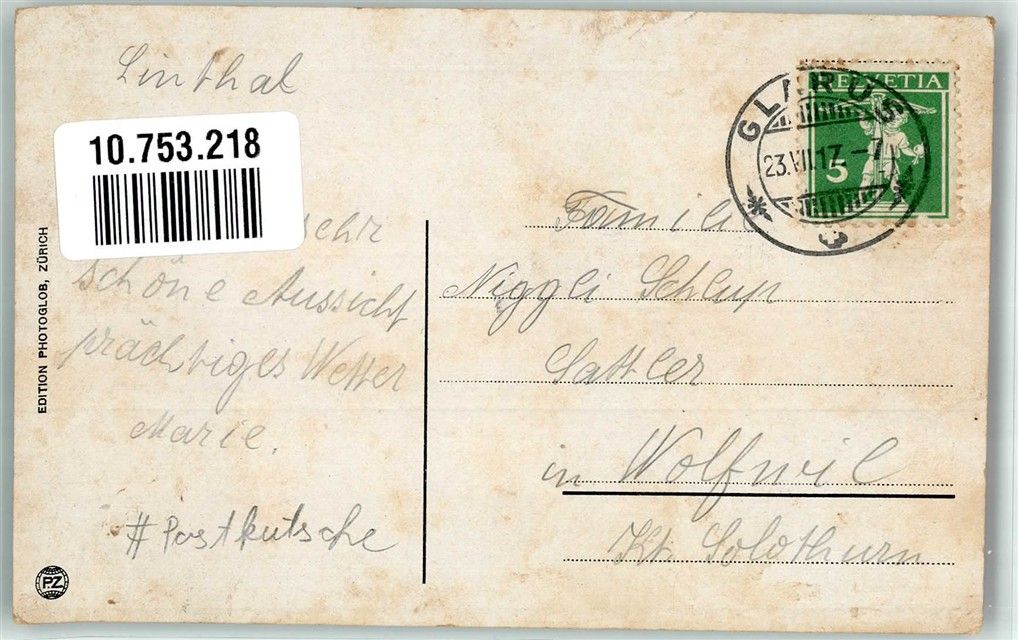 Linthal
10.753.218
sehr
schöne Aussicht
prächtiges Wetter
Marie.
#Postkutsche
EDITION PHOTOGLOB, ZÜRICH
PZ
HELVETIA
5
GLARUS
23.VII.17.-7
Familie
Niggli Schlup
Sattler
in Wolfwil
Kt. Solothurn